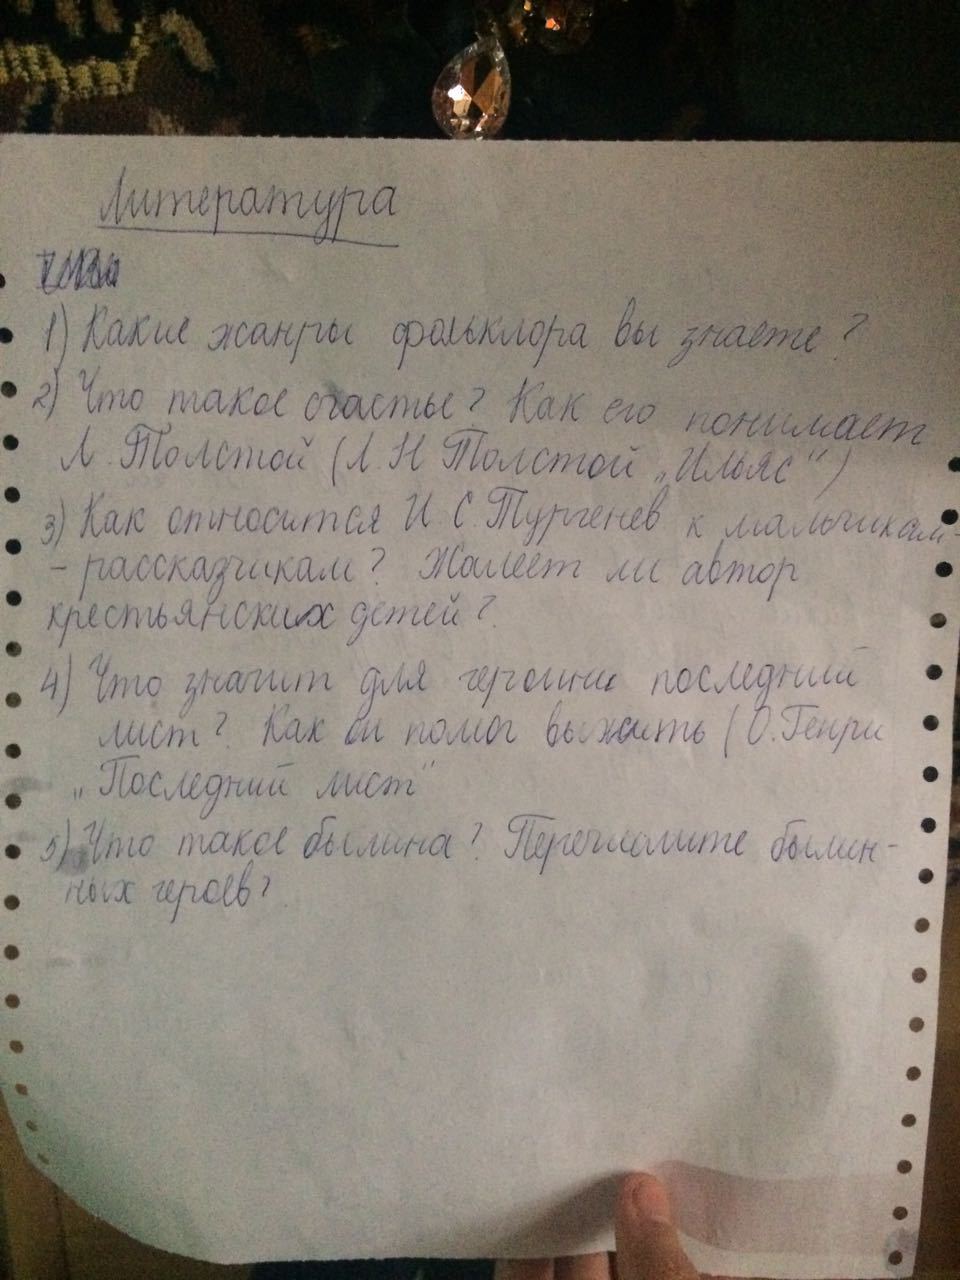 Литература
1) Какие жанры фольклора вы знаете?
2) Что такое счастье? Как его понимает
Л. Толстой (Л.Н Толстой „Ильяс")
3) Как относится И.С. Тургенев к мальчикам-
- рассказчикам? Жалеет ли автор
крестьянских детей?
4) Что значит для героини последний
лист? Как он помог выжить (О.Генри
„Последний лист"
5) Что такое былина? Перечислите былин-
ных героев?